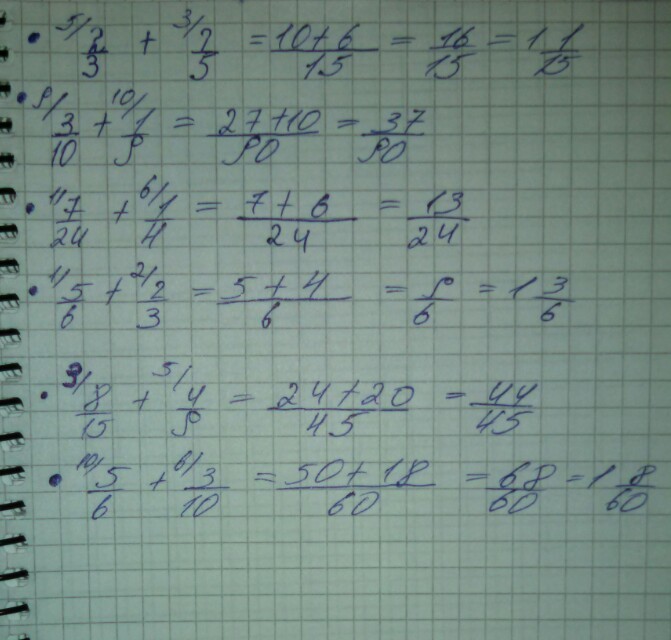 • 5/ 2/3 + 3/ 2/5 = 10+6/15 = 16/15 = 1 1/15
• 9/ 3/10 + 10/ 1/9 = 27+10/90 = 37/90
• 1/ 7/24 + 6/ 1/4 = 7+6/24 = 13/24
• 1/ 5/6 + 2/ 2/3 = 5+4/6 = 9/6 = 1 3/6
• 3/ 8/15 + 5/ 4/9 = 24+20/45 = 44/45
• 10/ 5/6 + 6/ 3/10 = 50+18/60 = 68/60 = 1 8/60